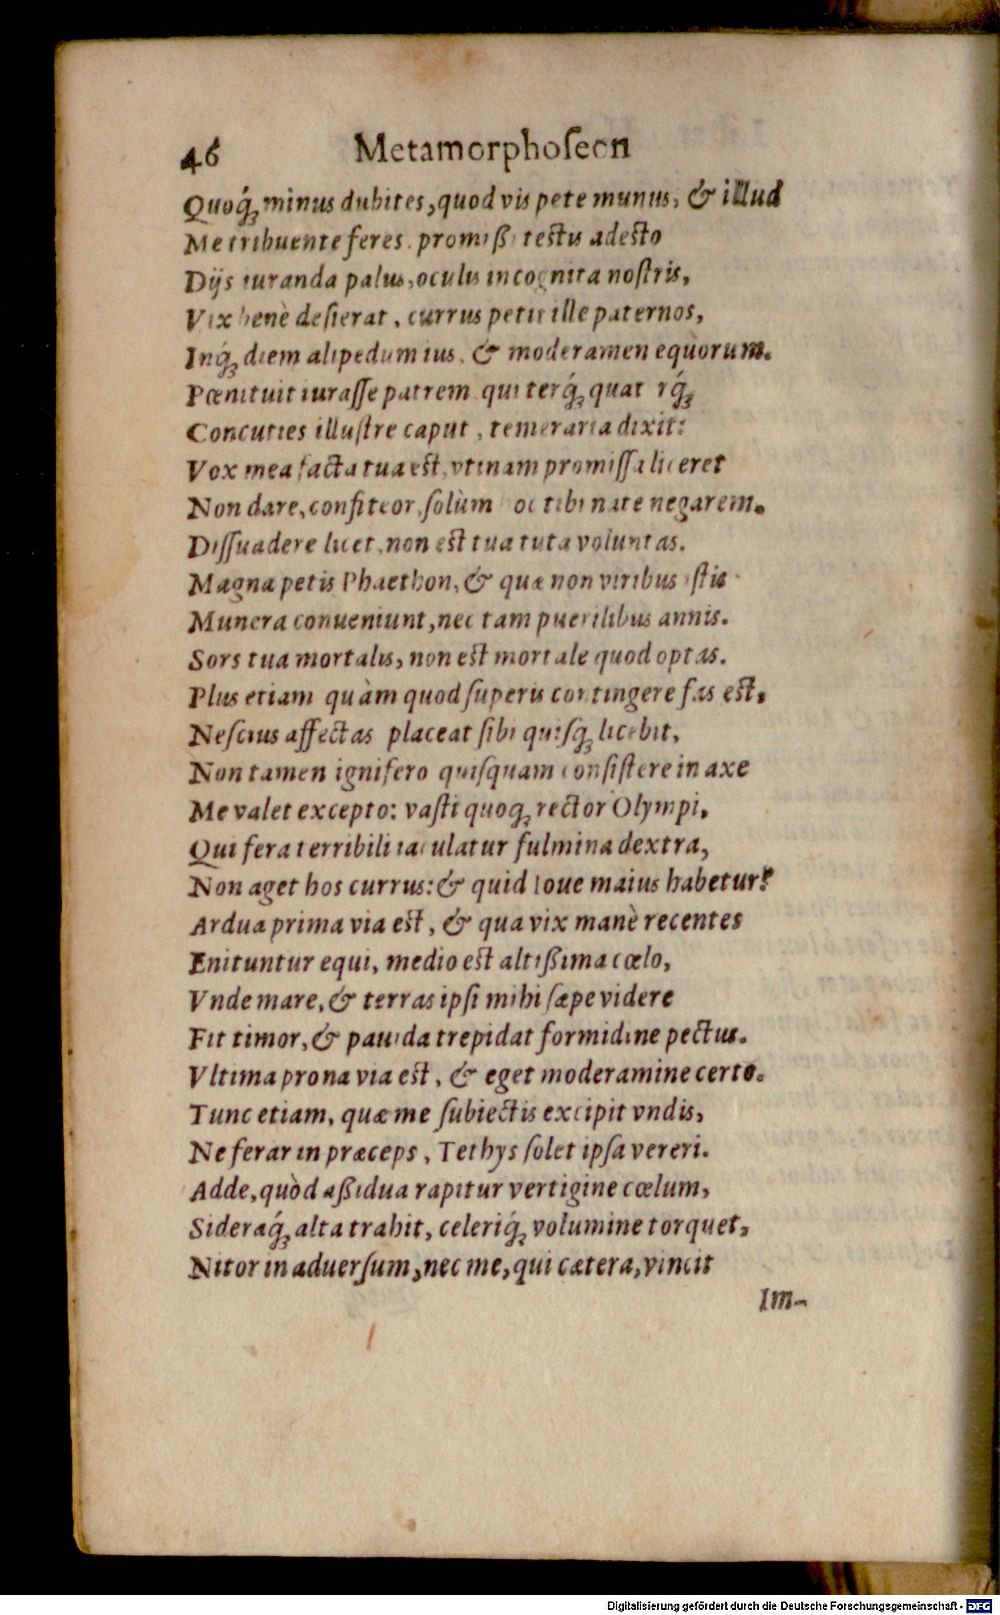 46 Metamorphoſeon
Quoq́; minus dubites, quod vis pete munus, & illud
Me tribuente feres. promißi testis adesto
Dijs iuranda palus, oculis incognita noſtris,
Vix benè deſierat, currus petit ille paternos,
Inq́; diem alipedum ius, & moderamen equorum.
Pœnituit iuraſſe patrem qui terq́; quat rq́;
Concutiens illuſtre caput, temeraria dixit:
Vox mea facta tua est, vtinam promiſſa liceret
Non dare, confiteor, ſolùm oc tibi nate negarem.
Diſſuadere licet, non est tua tuta voluntas.
Magna petis Phaethon, & quæ non viribus iſtis
Munera conueniunt, nec tam puerilibus annis.
Sors tua mortalis, non est mortale quod optas.
Plus etiam quàm quod ſuperis contingere fas est,
Neſcius affectas placeat ſibi quiſq; licebit,
Non tamen ignifero quiſquam conſiſtere in axe
Me valet excepto: vaſti quoq; rector Olympi,
Qui fera terribili iaculatur fulmina dextra,
Non aget hos currus: & quid Ioue maius habetur?
Ardua prima via est, & qua vix manè recentes
Enituntur equi, medio est altißima cœlo,
Vnde mare, & terras ipſi mihi ſæpe videre
Fit timor, & pauida trepidat formidine pectus.
Vltima prona via est, & eget moderamine certo.
Tunc etiam, quæ me ſubiectis excipit vndis,
Ne ferar in præceps, Tethys ſolet ipſa vereri.
Adde, quòd aßidua rapitur vertigine cœlum,
Sideraq́; alta trahit, celeriq́; volumine torquet,
Nitor in aduerſum, nec me, qui cætera, vincit
Im-
Digitalisierung gefördert durch die Deutsche Forschungsgemeinschaft - DFG